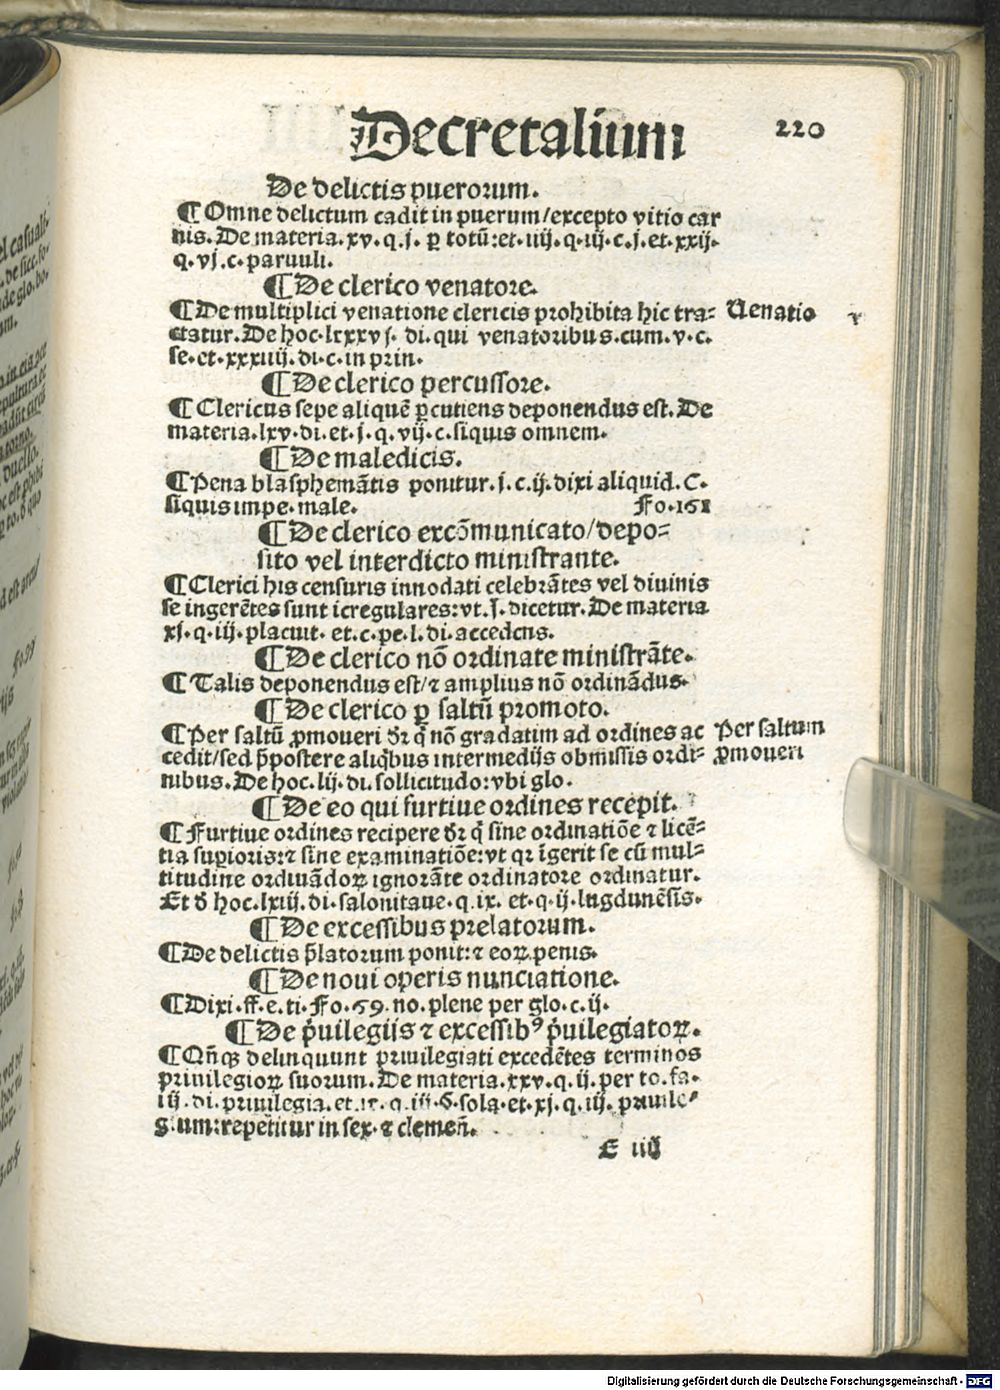 Decretalium 220
De delictis puerorum.
¶ Omne delictum cadit in puerum/excepto vitio car
nis. De materia.xv.q.j. ꝑ totū:et.iiij.q.iij.c.j.et.xxij.
q.vj.c.paruuli.
¶ De clerico venatore.
¶ De multiplici venatione clericis prohibita hic tra= Uenatio
ctatur. De hoc.lxxxvj. di.qui venatoribus.cum.v.c.
se.et.xxxiiij.di.c.in prin.
¶ De clerico percussore.
¶ Clericus sepe aliquē ꝑcutiens deponendus est. De
materia.lxv.di.et.j.q.vij.c.siquis omnem.
¶ De maledicis.
¶ Pena blasphemātis ponitur.j.c.ij.dixi aliquid. C.
siquis impe.male. Fo.161
¶ De clerico excōmunicato/depo=
sito vel interdicto ministrante.
¶ Clerici his censuris innodati celebrātes vel diuinis
se ingerētes sunt icregulares:vt.j.dicetur. De materia
xj.q.iij.placuit. et.c.pe.l.di.accedens.
¶ De clerico nō ordinate ministrāte.
¶ Talis deponendus est/⁊ amplius nō ordinādus.
¶ De clerico ꝑ saltū promoto.
¶ Per saltū ꝓmoueri dr̄ q̇ nō gradatim ad ordines ac Per saltum
cedit/sed p̄postere aliq̇bus intermedijs obmissis ordi= ꝓmoueri
nibus. De hoc.lij.di.sollicitudo:vbi glo.
¶ De eo qui furtiue ordines recepit.
¶ Furtiue ordines recipere dr̄ q̇ sine ordinatiōe ⁊ licē=
tia suꝑioris:⁊ sine examinatiōe:vt qr īgerit se cū mul=
titudine ordinādoꝝ ignorāte ordinatore ordinatur.
Et đ hoc.lxiij.di.salonitane.q.ix. et.q.ij.lugdunēsis.
¶ De excessibus prelatorum.
¶ De delictis p̄latorum ponit:⁊ eoꝝ penis.
¶ De noui operis nunciatione.
¶ Dixi.ff.e.ti.Fo.59.no.plene per glo.c.ij.
¶ De p̓uilegijs ⁊ excessibꝰ p̓uilegiatoꝝ.
¶ Qn̄qꝫ delinquunt priuilegiati excedētes terminos
priuilegioꝝ suorum. De materia.xxv.q.ij.per to.fa.
iij.di.priuilegia.et. q.iij.§.sola.et.xj.q.iij. priuile=
gium:repetitur in sex.⁊ clemen̄.
E iiij
Digitalisierung gefördert durch die Deutsche Forschungsgemeinschaft - DFG